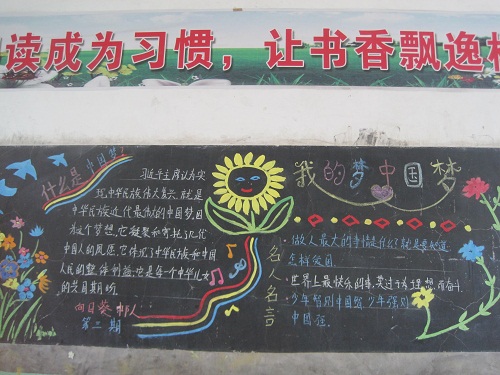 阅读成为习惯，让书香飘逸校
什么是中国梦？
习近平主席认为实
现中华民族伟大复兴，就是
中华民族近代最伟大的中国梦因
为这个梦想，它凝聚和寄托了几代
中国人的夙愿，它体现了中华民族和中国
人民的整体利益，它是每一个中华儿女
的共同期盼
向日葵
第二期
我的梦中国梦
名人名言
做人最大的事情是什么？就是要知道
怎样爱国
世界上最快乐的事，莫过于为理想而奋斗
少年智则中国智，少年强则
中国强